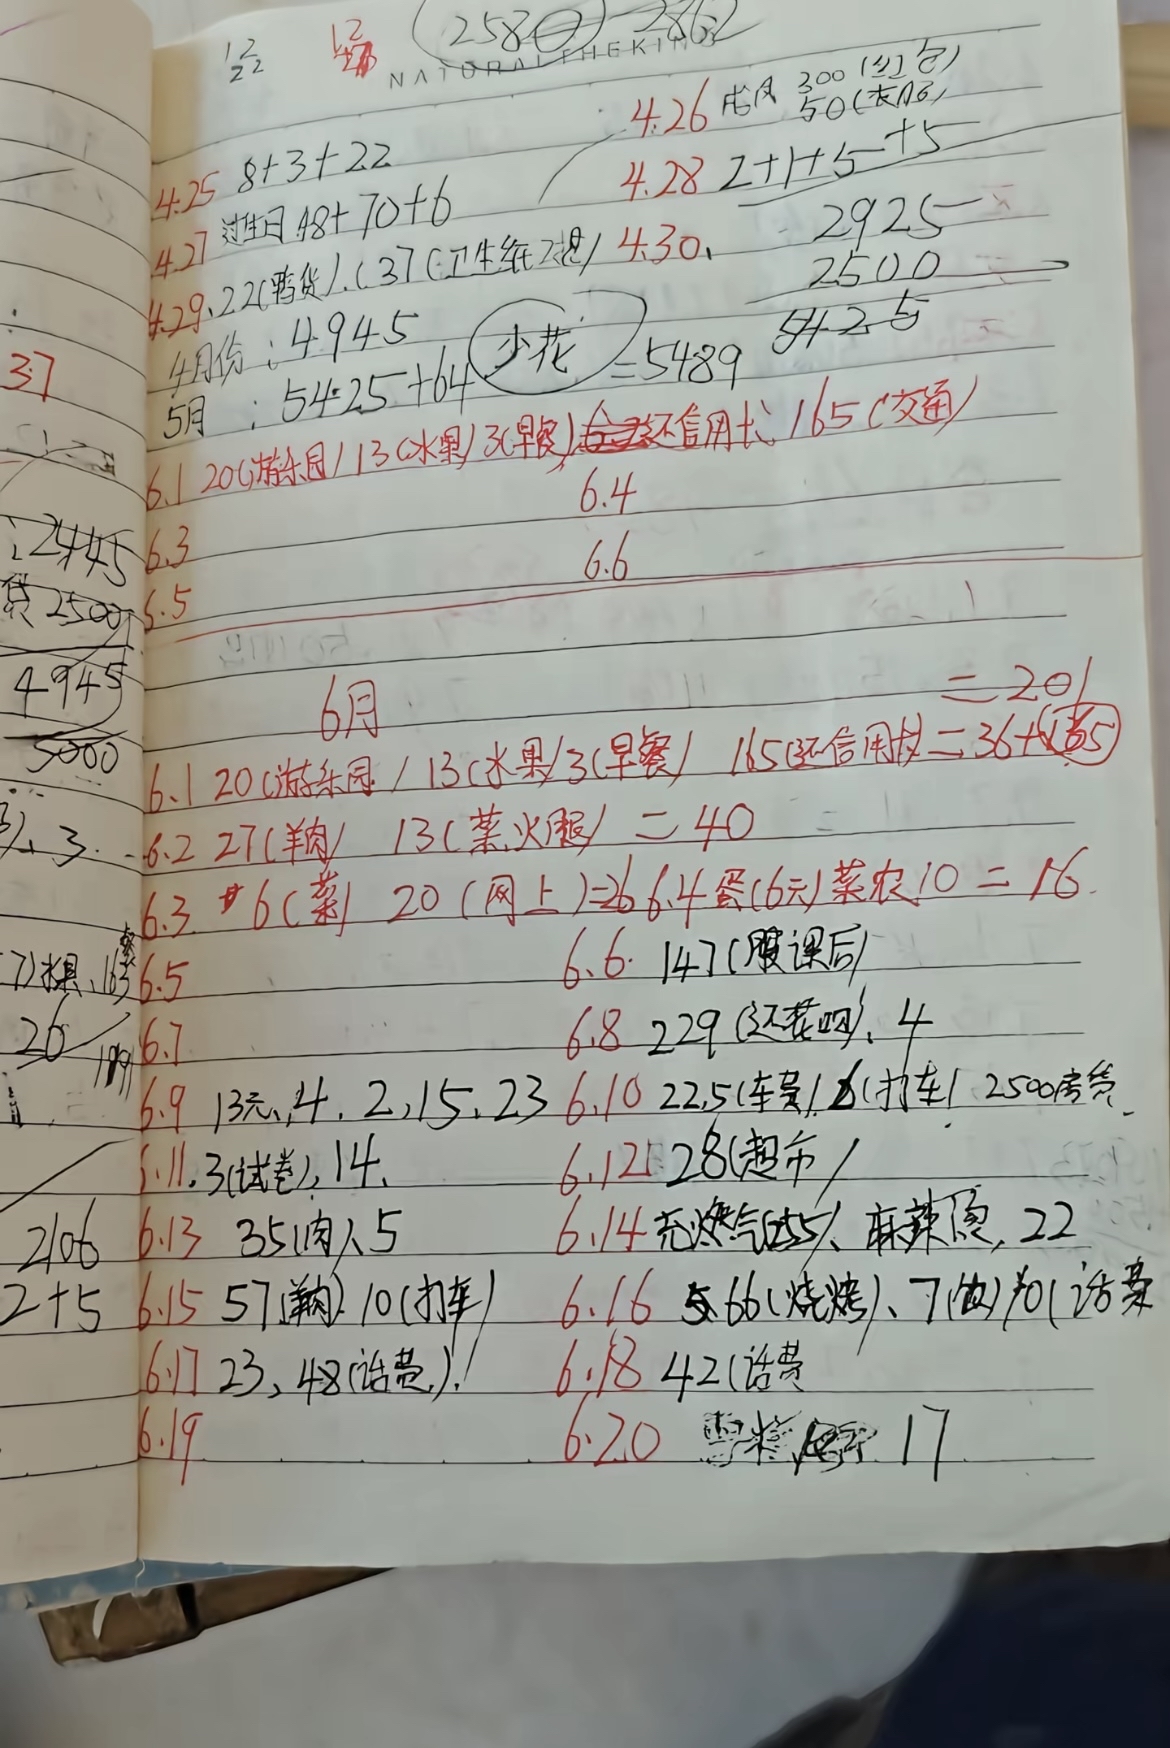 2580 2862
12
22
NATURAL THEKING
4.26 300(红包)
50(衣服)
4.25 8+3+22
4.28 2+1+5+5
4.27 过生日 48+70+6
2925
4.29、22(鸭货)、(37(卫生纸2提) 4.30、
2500
4月份：4945
5425
5月：5425+64 少花 =5489
6.1 20(游乐园) 13(水果) 3(早餐) 还信用卡 165(交通)
6.3 6.4
6.5 6.6
6月 =201
6.1 20(游乐园) 13(水果) 3(早餐) 165(还信用卡)=36+165
6.2 27(羊肉) 13(菜、火腿) =40
6.3 6(菜) 20(网上)=26 6.4 蛋(6元) 菜农10=16
6.5 6.6 147(服课后)
6.7 6.8 229(还花呗)、4
6.9 13元、4、2、15、23 6.10 22.5(车费) 6(打车) 2500房贷
6.11、3(试卷)、14、 6.12 28(超市)
6.13 35(肉)、5 6.14 充燃气(255)、麻辣烫、22
6.15 57(羊肉) 10(打车) 6.16 66(烧烤)、7 10(话费
6.17 23、48(话费) 6.18 42(话费
6.19 6.20 17
37
2445
贷 2500
4945
5000
3
水果、163
26
2106
2+5